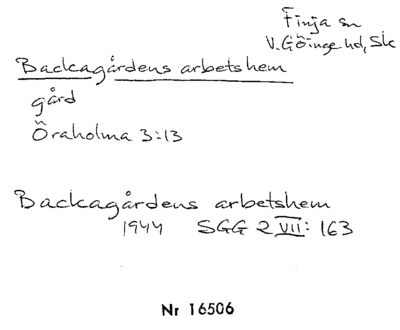 Finja sn
V. Göinge hd, Sk
Backagårdens arbetshem
gård
Öraholma 3:13
Backagårdens arbetshem
1944 SGG 2 VII: 163
Nr 16506